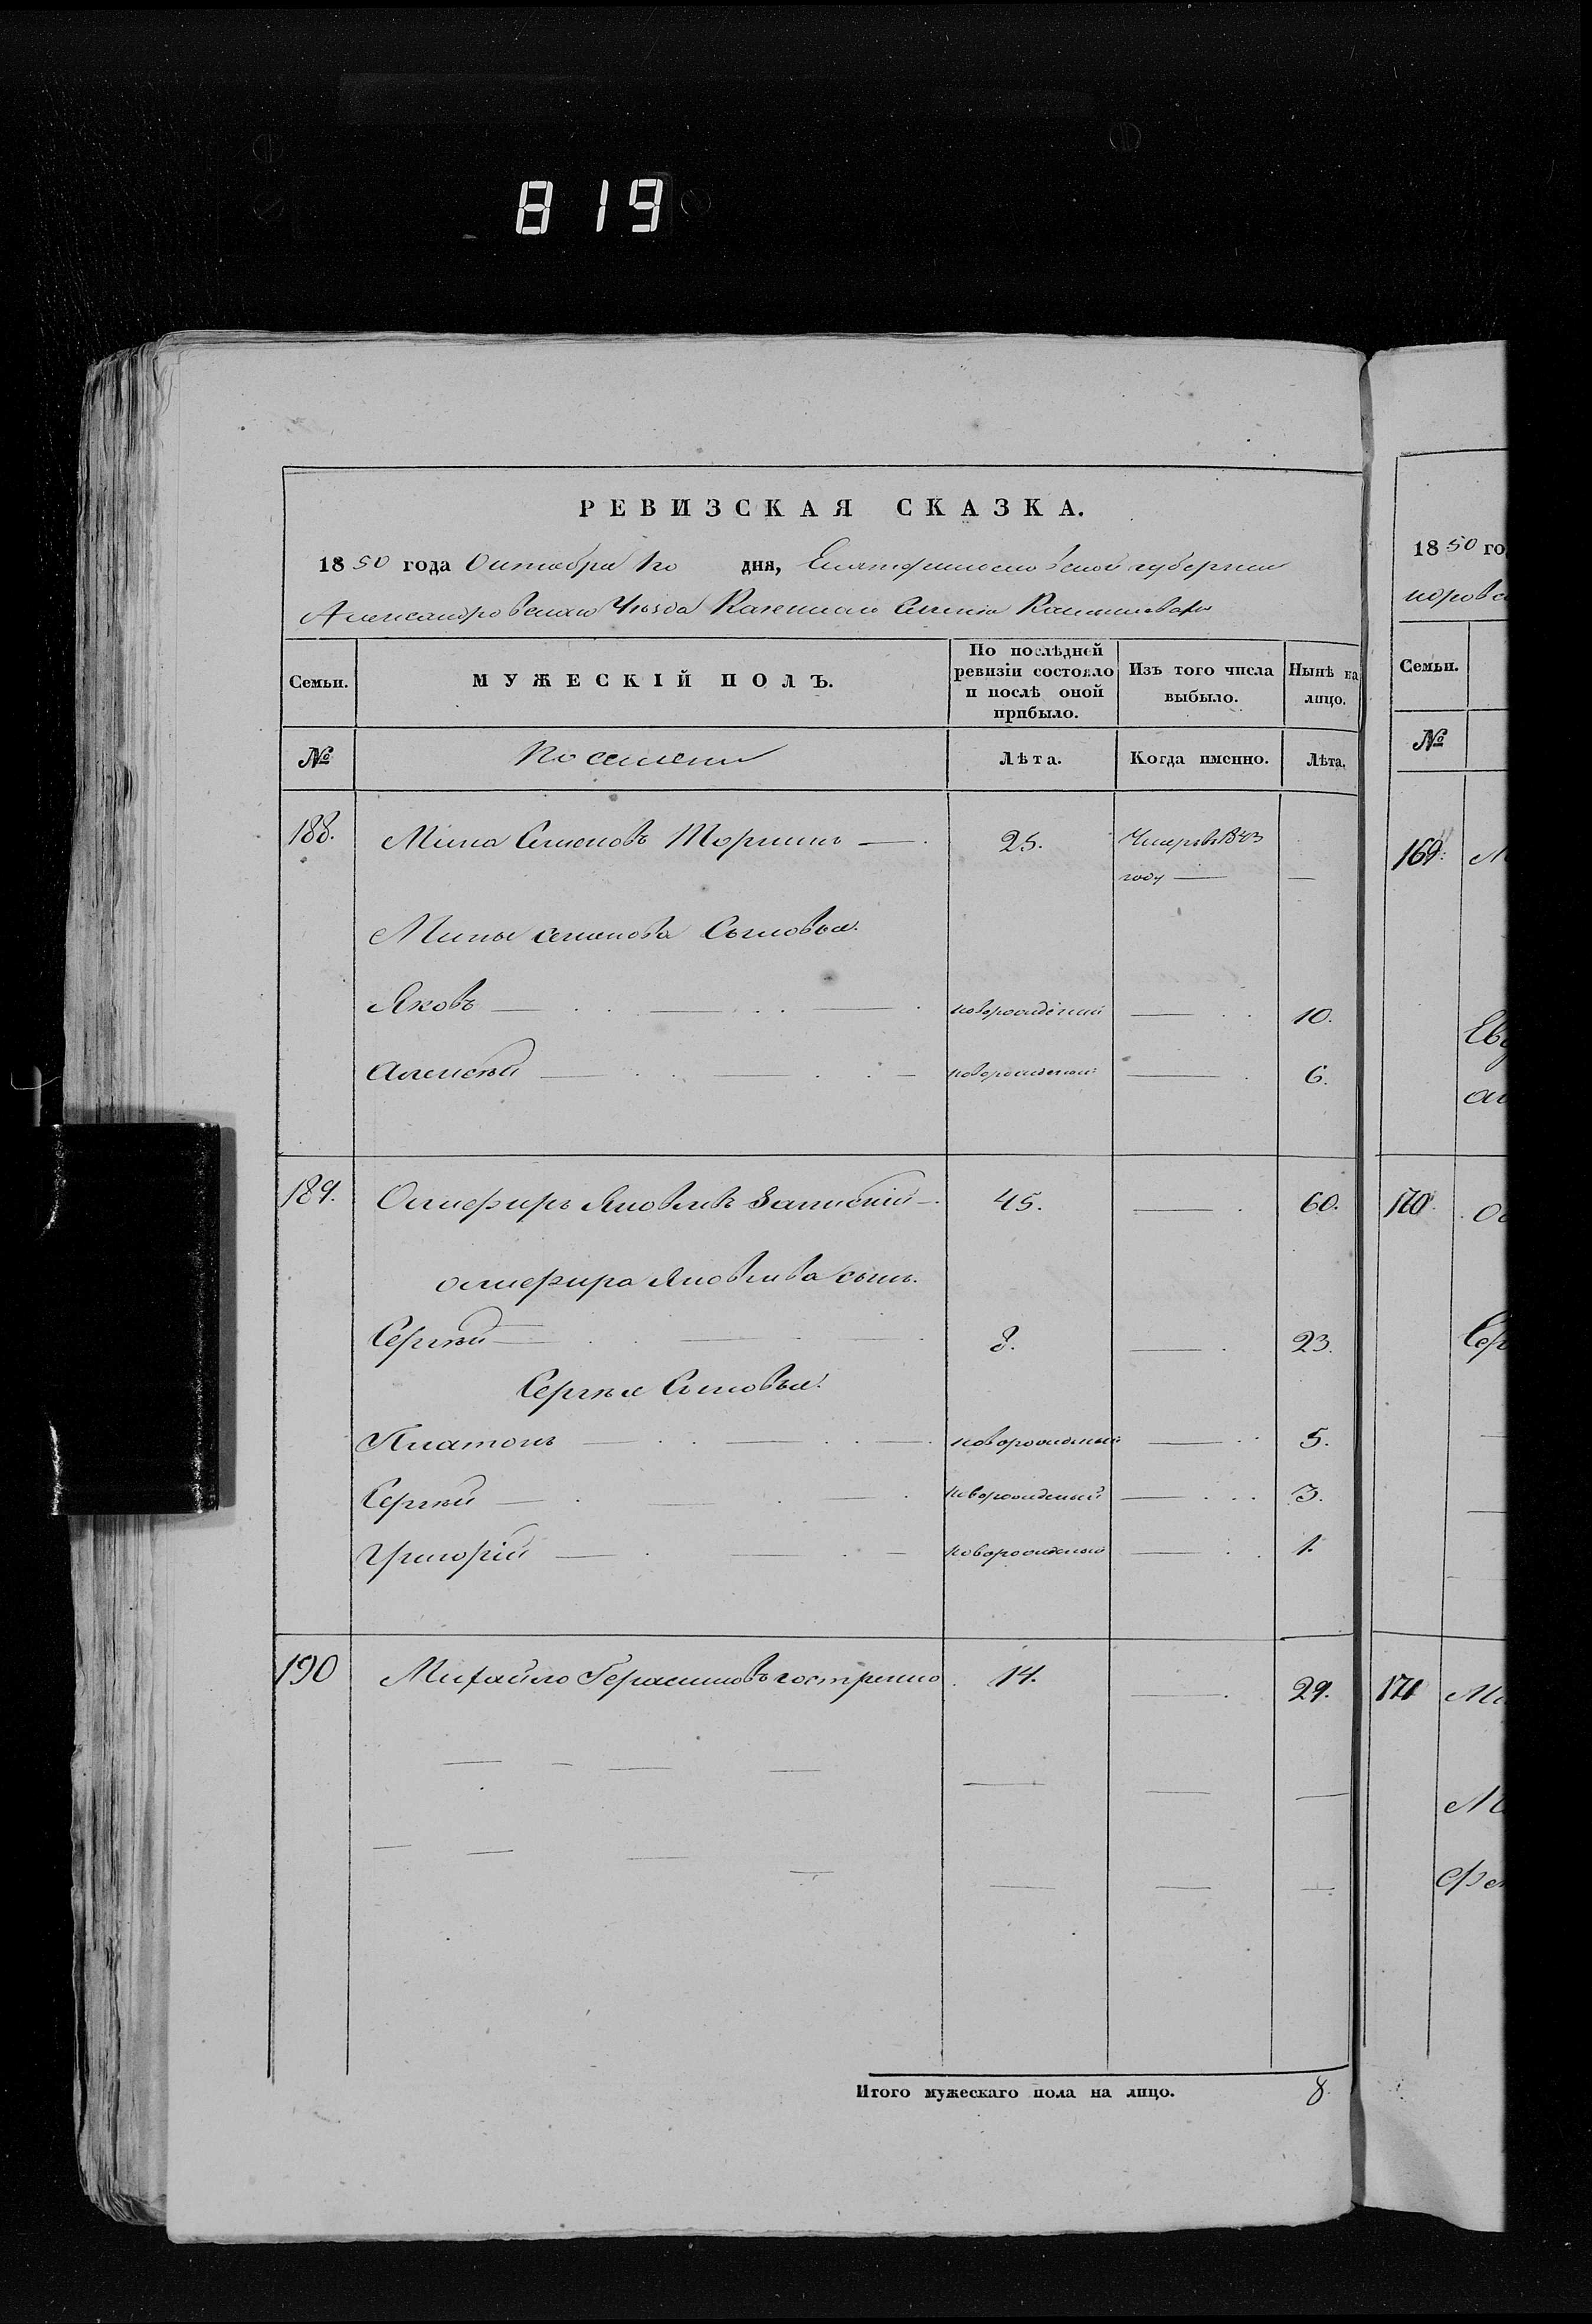 819
РЕВИЗСКАЯ СКАЗКА.
1850 года Октября 1го дня, Екатеринославской губернии
Александровскаго Уѣзда Казеннаго Селенія
Семьи. МУЖЕСКІЙ ПОЛЪ. По послѣдней ревизіи состояло и послѣ оной прибыло. Изъ того числа выбыло. Нынѣ на лицо.
№ Поселяни Лѣта. Когда именно. Лѣта.
188. Мина Семеновъ 25. Умеръ въ 1843
году —
Мины Семенова Сыновья.
Яковъ новорожденый 10.
Алексѣй новорожденый 6.
189. Яковливъ 45. 60.
Яковлива сынъ.
Сергѣй 8. 23.
Сергѣя Сыновья.
Платонъ новорожденый 5.
Сергѣй новорожденый 3.
Григорій новорожденый 1.
190 Михайло Герасимовъ 14. 29.
Итого мужескаго пола на лицо. 8.
1850 го
Семьи.
№
169.
170.
Сер
171